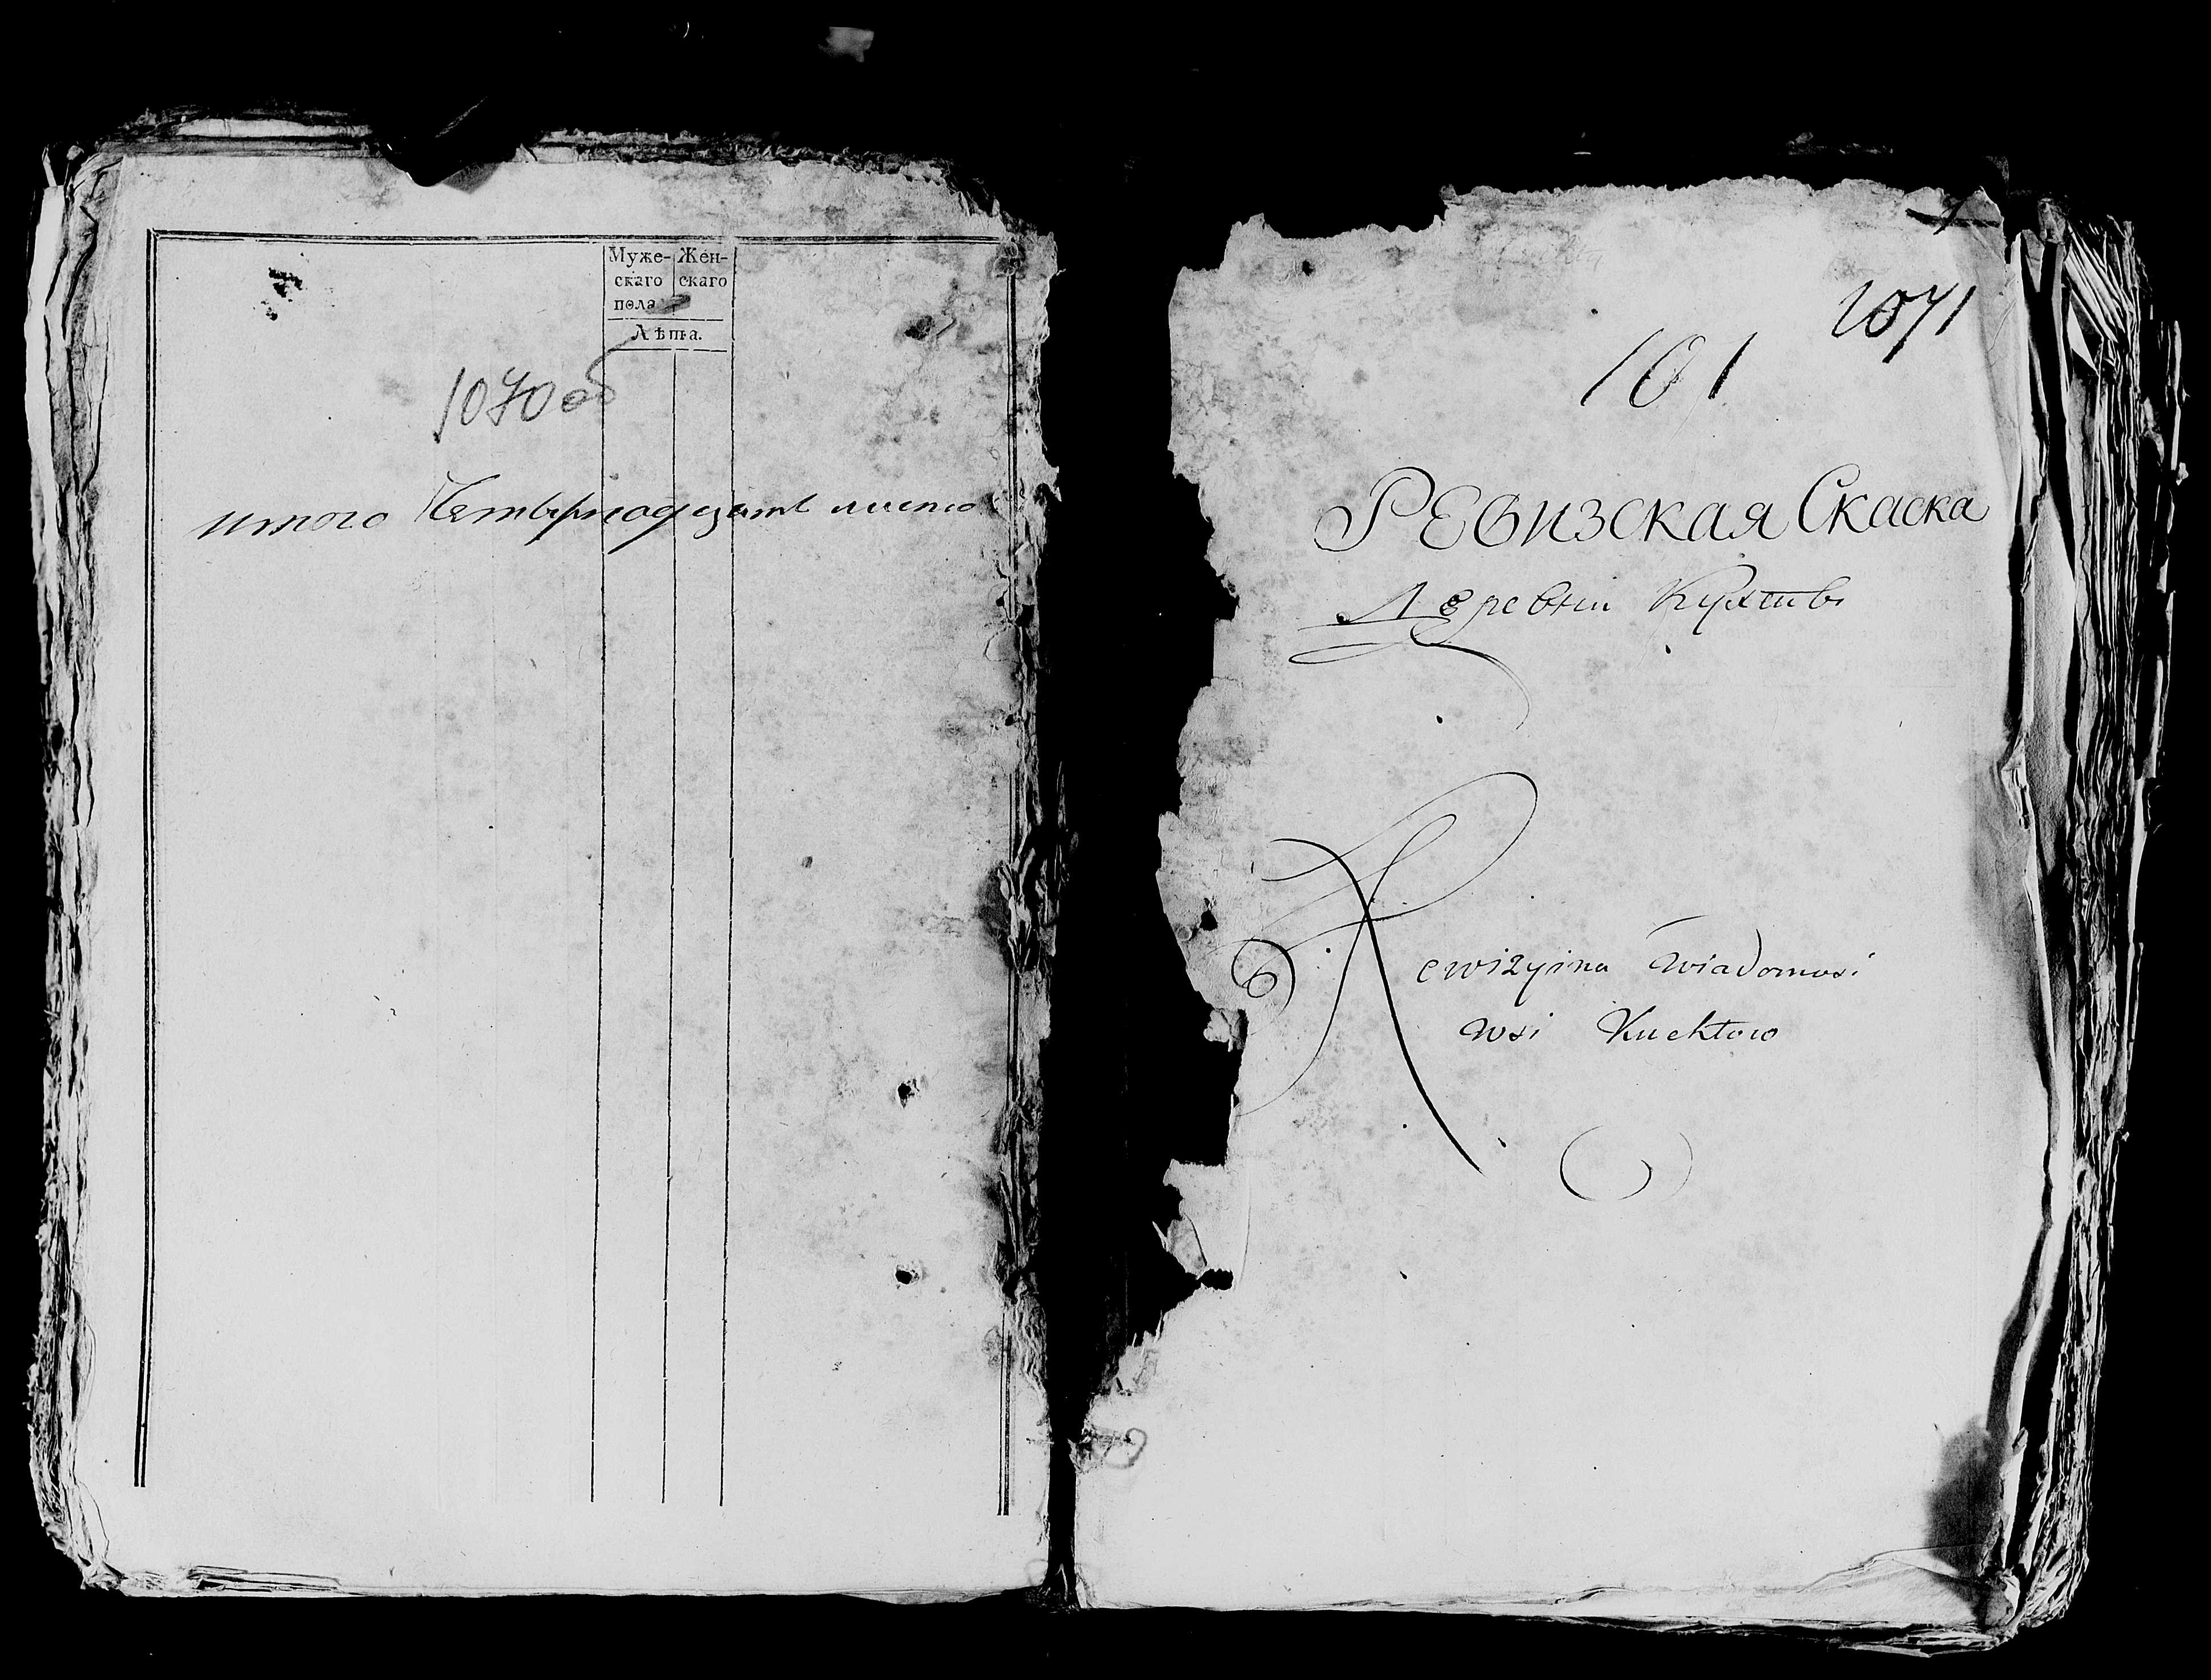 Муже-
скаго
пола
Жен-
скаго
Лѣта.
1070 об
итого Четырнадцать листо
1071
101
Ревизская Скаска
Деревни Кухтів
Rewizyina Wiadomosi
Wsi Kuchtow